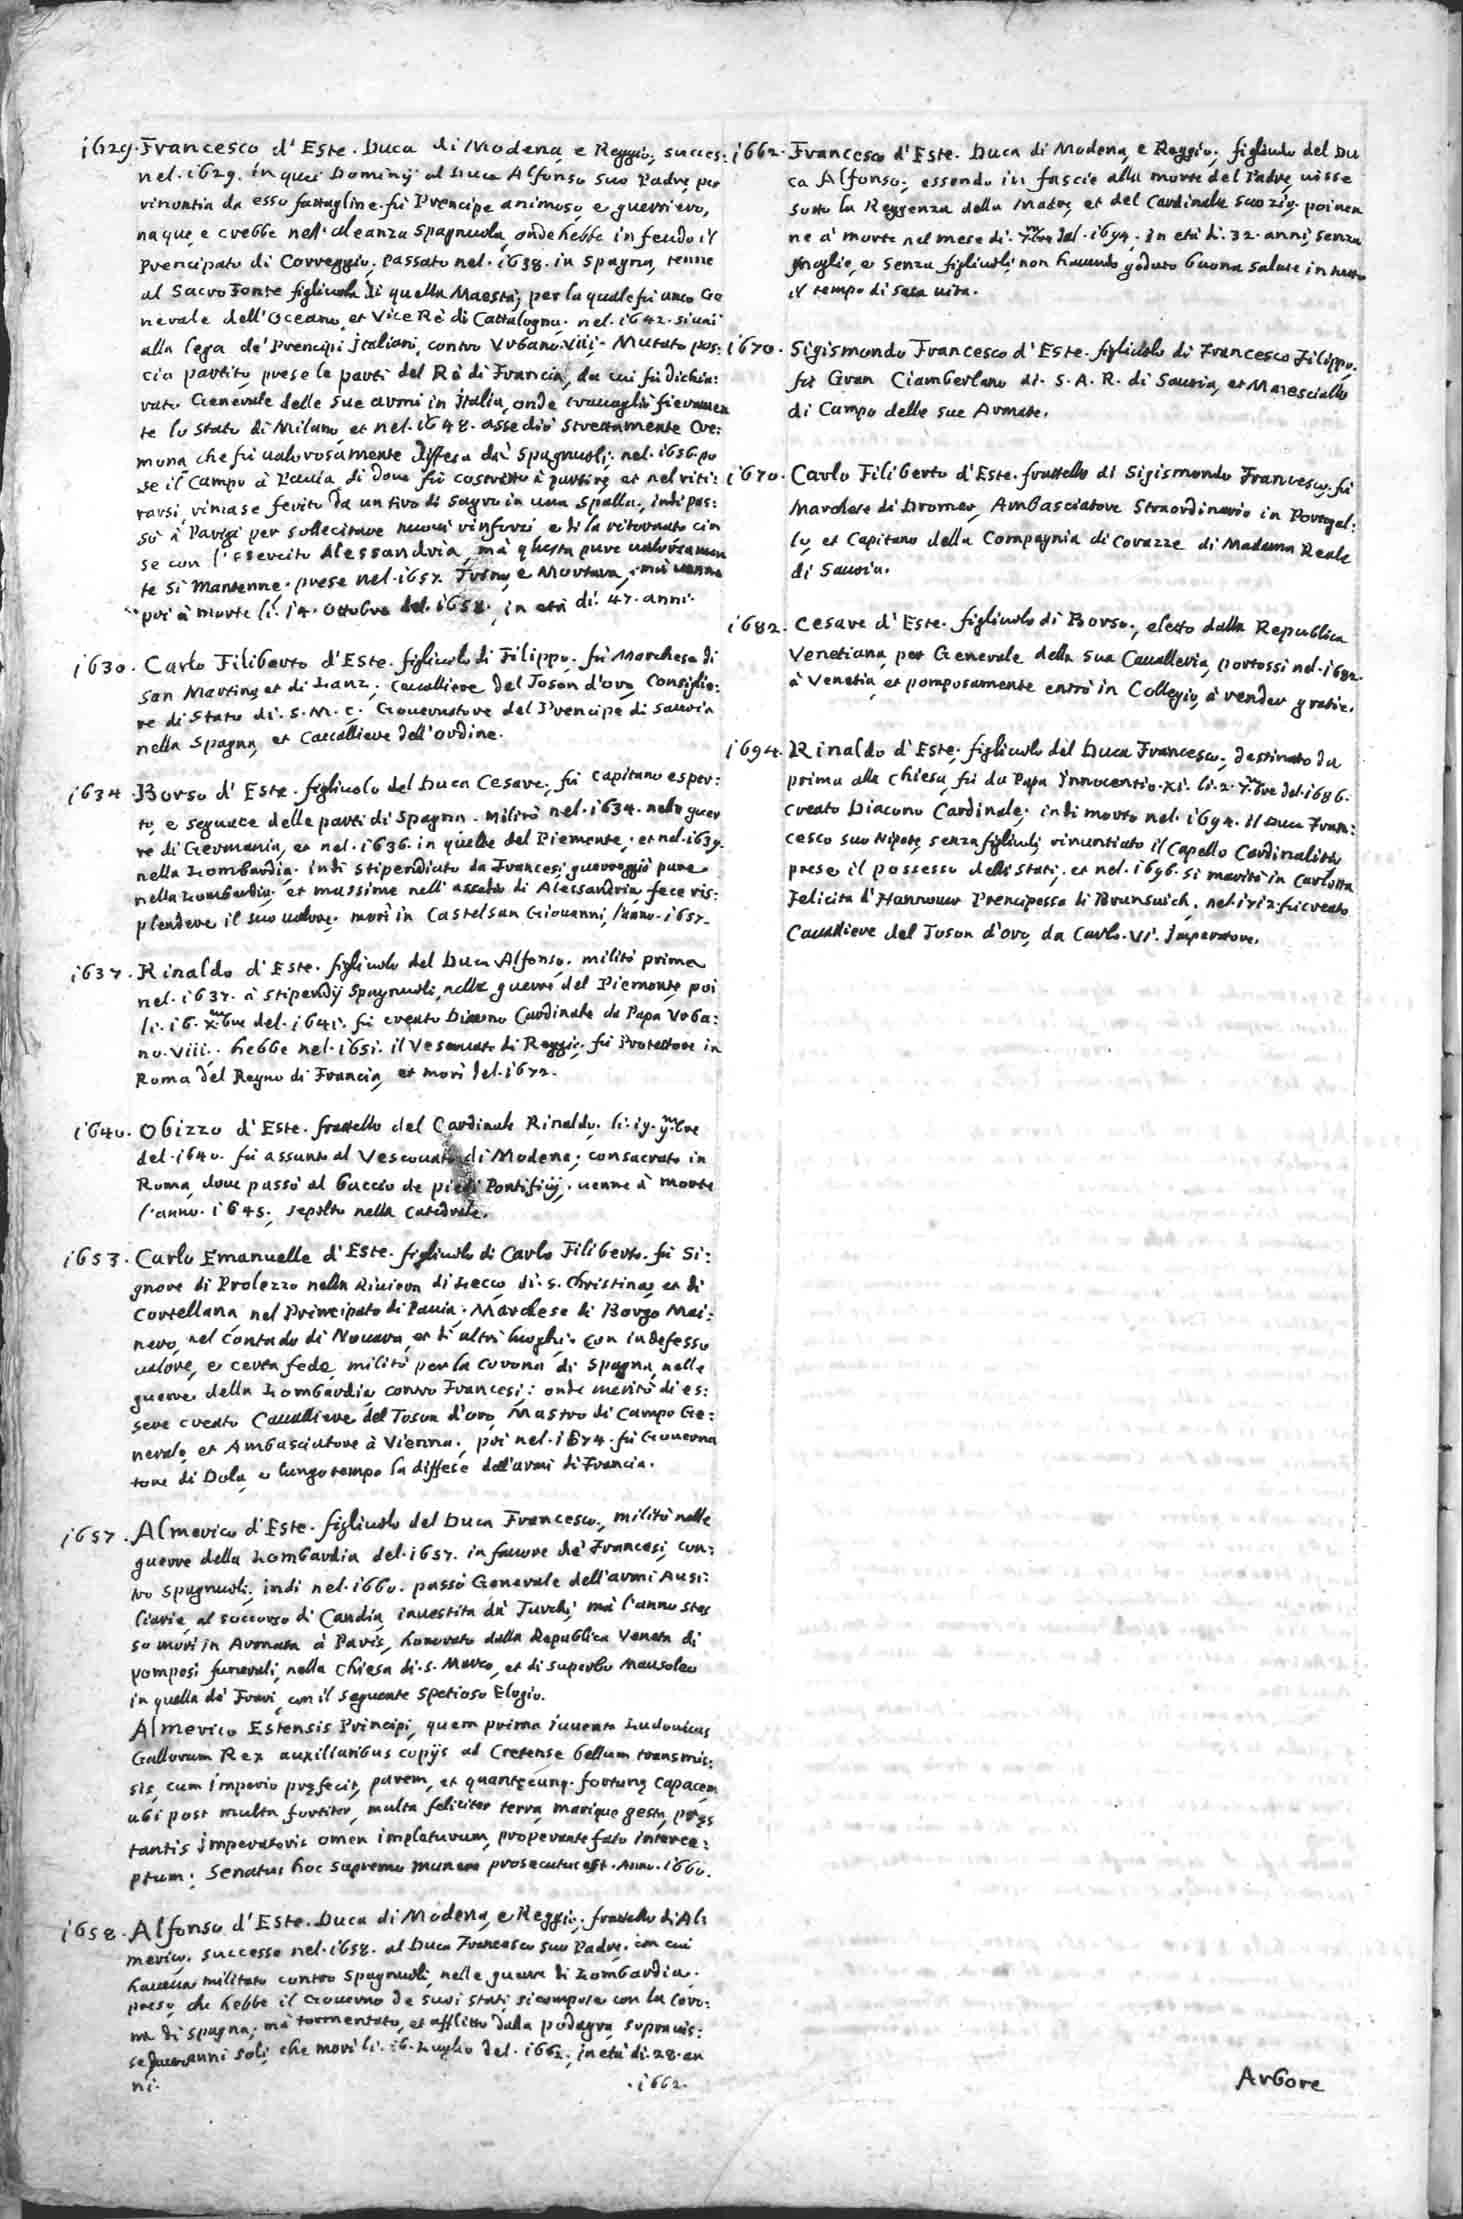 1629. Francesco d'Este. Duca di Modena, e Reggio, succes:
nel. 1629. in quei Dominij al Duca Alfonso suo Padre, per
rinontia da esso fattagline. fù Prencipe animoso, e guerriero,
naque, e crebbe nell'aleanza spagnuola, onde hebbe in feudo il
Prencipato di Correggio. Passato nel. 1638. in Spagna, tenne
al Sacro Fonte figliuola di quella Maestà, per la quale fù anco Ge
nerale dell'Oceano, et Vice Rè di Cattalogna. nel. 1642. si unì
alla lega de' Prencipi Italiani, contro Urbano. Viii. Mutato pos:
cia partito, prese le parti del Rè di Francia, da cui fù dichia:
rato Generale delle sue armi in Italia, onde trauagliò fieramen
te lo stato di Milano, et nel. 1648. assediò strettamente Cre:
mona, che fù ualorosamente diffesa dà Spagnuoli. nel. 1656. po
se il Campo à Pauia, di doue fù costretto à partire, et nel riti:
rarsi, rimase ferito da un tiro di sagro in una spalla, indi pas:
sò à Parigi per sollecitare nuoui rinforzi, e di là ritornato cin
se con l'essercito Alessandria, mà questa pure ualorosamen
te si mantenne. prese nel. 1657. Trino, e Mortara, mà uenne
poi à morte li. 14. Ottobre del. 1658. in età di. 47. anni.
1630. Carlo Filiberto d'Este. figliuolo di Filippo. fù Marchese di
San Martino, et di Lanz, Caualliere del Toson d'oro, Consiglie:
re di Stato di. S. M. C. Gouernatore del Prencipe di Sauoia
nella Spagna, et Cauалliere dell'ordine.
1634 Borso d'Este. figliuolo del Duca Cesare, fù Capitano esper:
to, e seguace delle parti di Spagna. militò nel. 1634. nelle guer
re di Germania, et nel. 1636. in quelle del Piemonte, et nel. 1639.
nella Lombardia. indi stipendiato da Francesi guerreggiò pure
nella Lombardia. et massime nell'assedio di Alessandria, fece ris:
plendere il suo ualore. morì in Castel san Giouanni, l'anno. 1657.
1637. Rinaldo d'Este. figliuolo del Duca Alfonso. militò prima
nel. 1637. à stipendij Spagnuoli, nelle guerre del Piemonte, poi
li. 16. Xmbre del. 1641. fù creato Diacono Cardinale da Papa Urba:
no. Viii. hebbe nel. 1651. il Vescouato di Reggio. fù Protettore in
Roma del Regno di Francia, et morì del. 1672.
1640. Obizzo d'Este. frattello del Cardinale Rinaldo. li. 19. 9mbre
del. 1640. fù assunto al Vescouato di Modena, consacrato in
Roma, doue passò al baccio de piedi Pontificij. uenne à morte
l'anno. 1645. sepolto nella Catedrale.
1653. Carlo Emanuelle d'Este. figliuolo di Carlo Filiberto. fù Si:
gnore di Prolezzo nella Riuiera di Lecco, di. S. Christina, et di
Cortellana, nel Principato di Pauia. Marchese di Borgo Mai:
nero, nel Contado di Nouara, et di altri luoghi. con indefesso
ualore, e certa fede, militò per la Corona di Spagna, nelle
guerre della Lombardia contro Francesi: onde meritò di es:
sere creato Cauалliere del Toson d'oro, Mastro di Campo Ge:
nerale, et Ambasciatore à Vienna. poi nel. 1674. fù Gouerna
tore di Dola, e lungo tempo la diffese dall'armi di Francia.
1657. Almerico d'Este. figliuolo del Duca Francesco, militò nelle
guerre della Lombardia del. 1657. in fauore de' Francesi, con:
tro Spagnuoli, indi nel. 1660. passò Generale dell'armi Ausi:
liarie, al soccorso di Candia, inuestita dà Turchi, mà l'anno stes
so morì in Armata à Paris, honorato dalla Republica Veneta di
pomposi funerali, nella Chiesa di. S. Marco, et di superbo Mausoleo
in quella de' Frari, con il seguente spetioso Elogio.
Almerico Estensis Principi, quem prima iuuenta Ludouicus
Gallorum Rex auxiliaribus copijs ad Cretense bellum transmis:
sis, cum imperio pręfecit, parem, et quantęcunq. fortunę capacem
ubi post multa fortiter, multa feliciter terra, marique gesta, pręs
tantis imperatoris omen impleturum, properante fato interce:
ptum, Senatus hoc supremo munere prosecutus est. Anno. 1660.
1658. Alfonso d'Este. Duca di Modena, e Reggio. frattello di Al:
merico. successe nel. 1658. al Duca Francesco suo Padre. con cui
haueua militato contro Spagnuoli, nelle guerre di Lombardia.
preso, che hebbe il Gouerno de suoi stati, si compose con la Coro:
na di Spagna, mà tormentato, et afflitto dalla podagra, soprauis:
se anni soli, che morì li. 16. Luglio del. 1662. in età di. 28. an
ni. .1662.
1662. Francesco d'Este. Duca di Modena, e Reggio, figliuolo del Du
ca Alfonso. essendo in fascie alla morte del Padre, uisse
sotto la Reggenza della Madre, et del Cardinale suo zio. poi uen
ne à morte nel mese di. 7mbre del. 1694. in età di. 32. anni, senza
moglie, e senza figliuoli, non hauendo goduto buona salute in tutto
il tempo di sua uita.
1670. Sigismondo Francesco d'Este. figliuolo di Francesco Filippo.
fù Gran Ciamberlano di. S. A. R. di Sauoia, et Maresciallo
di Campo delle sue Armate.
1670. Carlo Filiberto d'Este. frattello di Sigismondo Francesco. fù
Marchese di Dronero, Ambasciatore Straordinario in Portogal:
lo, et Capitano della Compagnia di Corazze di Madama Reale
di Sauoia.
1682. Cesare d'Este. figliuolo di Borso, eletto dalla Republica
Venetiana, per Generale della sua Caualleria, portossi nel. 1682.
à Venetia, et pomposamente entrò in Collegio, à render gratie.
1694. Rinaldo d'Este, figliuolo del Duca Francesco, destinato da
prima alla Chiesa, fù da Papa Innocentio. XI. li. 2. 7mbre del. 1686.
creato Diacono Cardinale, indi morto nel. 1694. il Duca Fran:
cesco suo Nipote, senza figliuoli, rinuntiato il Capello Cardinalitio
prese il possesso delli stati, et nel. 1696. si maritò in Carlotta
Felicita d'Hannouer Prencipessa di Brunswich. nel. 1712. fù creato
Cauалliere del Toson d'oro, da Carlo. VI. Imperatore.
Arbore